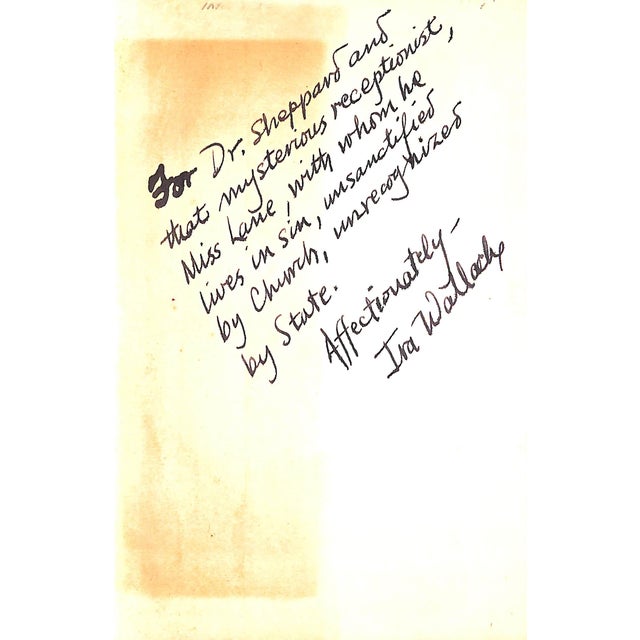 For Dr. Sheppard and
that mysterious receptionist,
Miss Lane, with whom he
lives in sin, unsanctified
by Church, unrecognized
by State.
Affectionately—
Ira Wallach